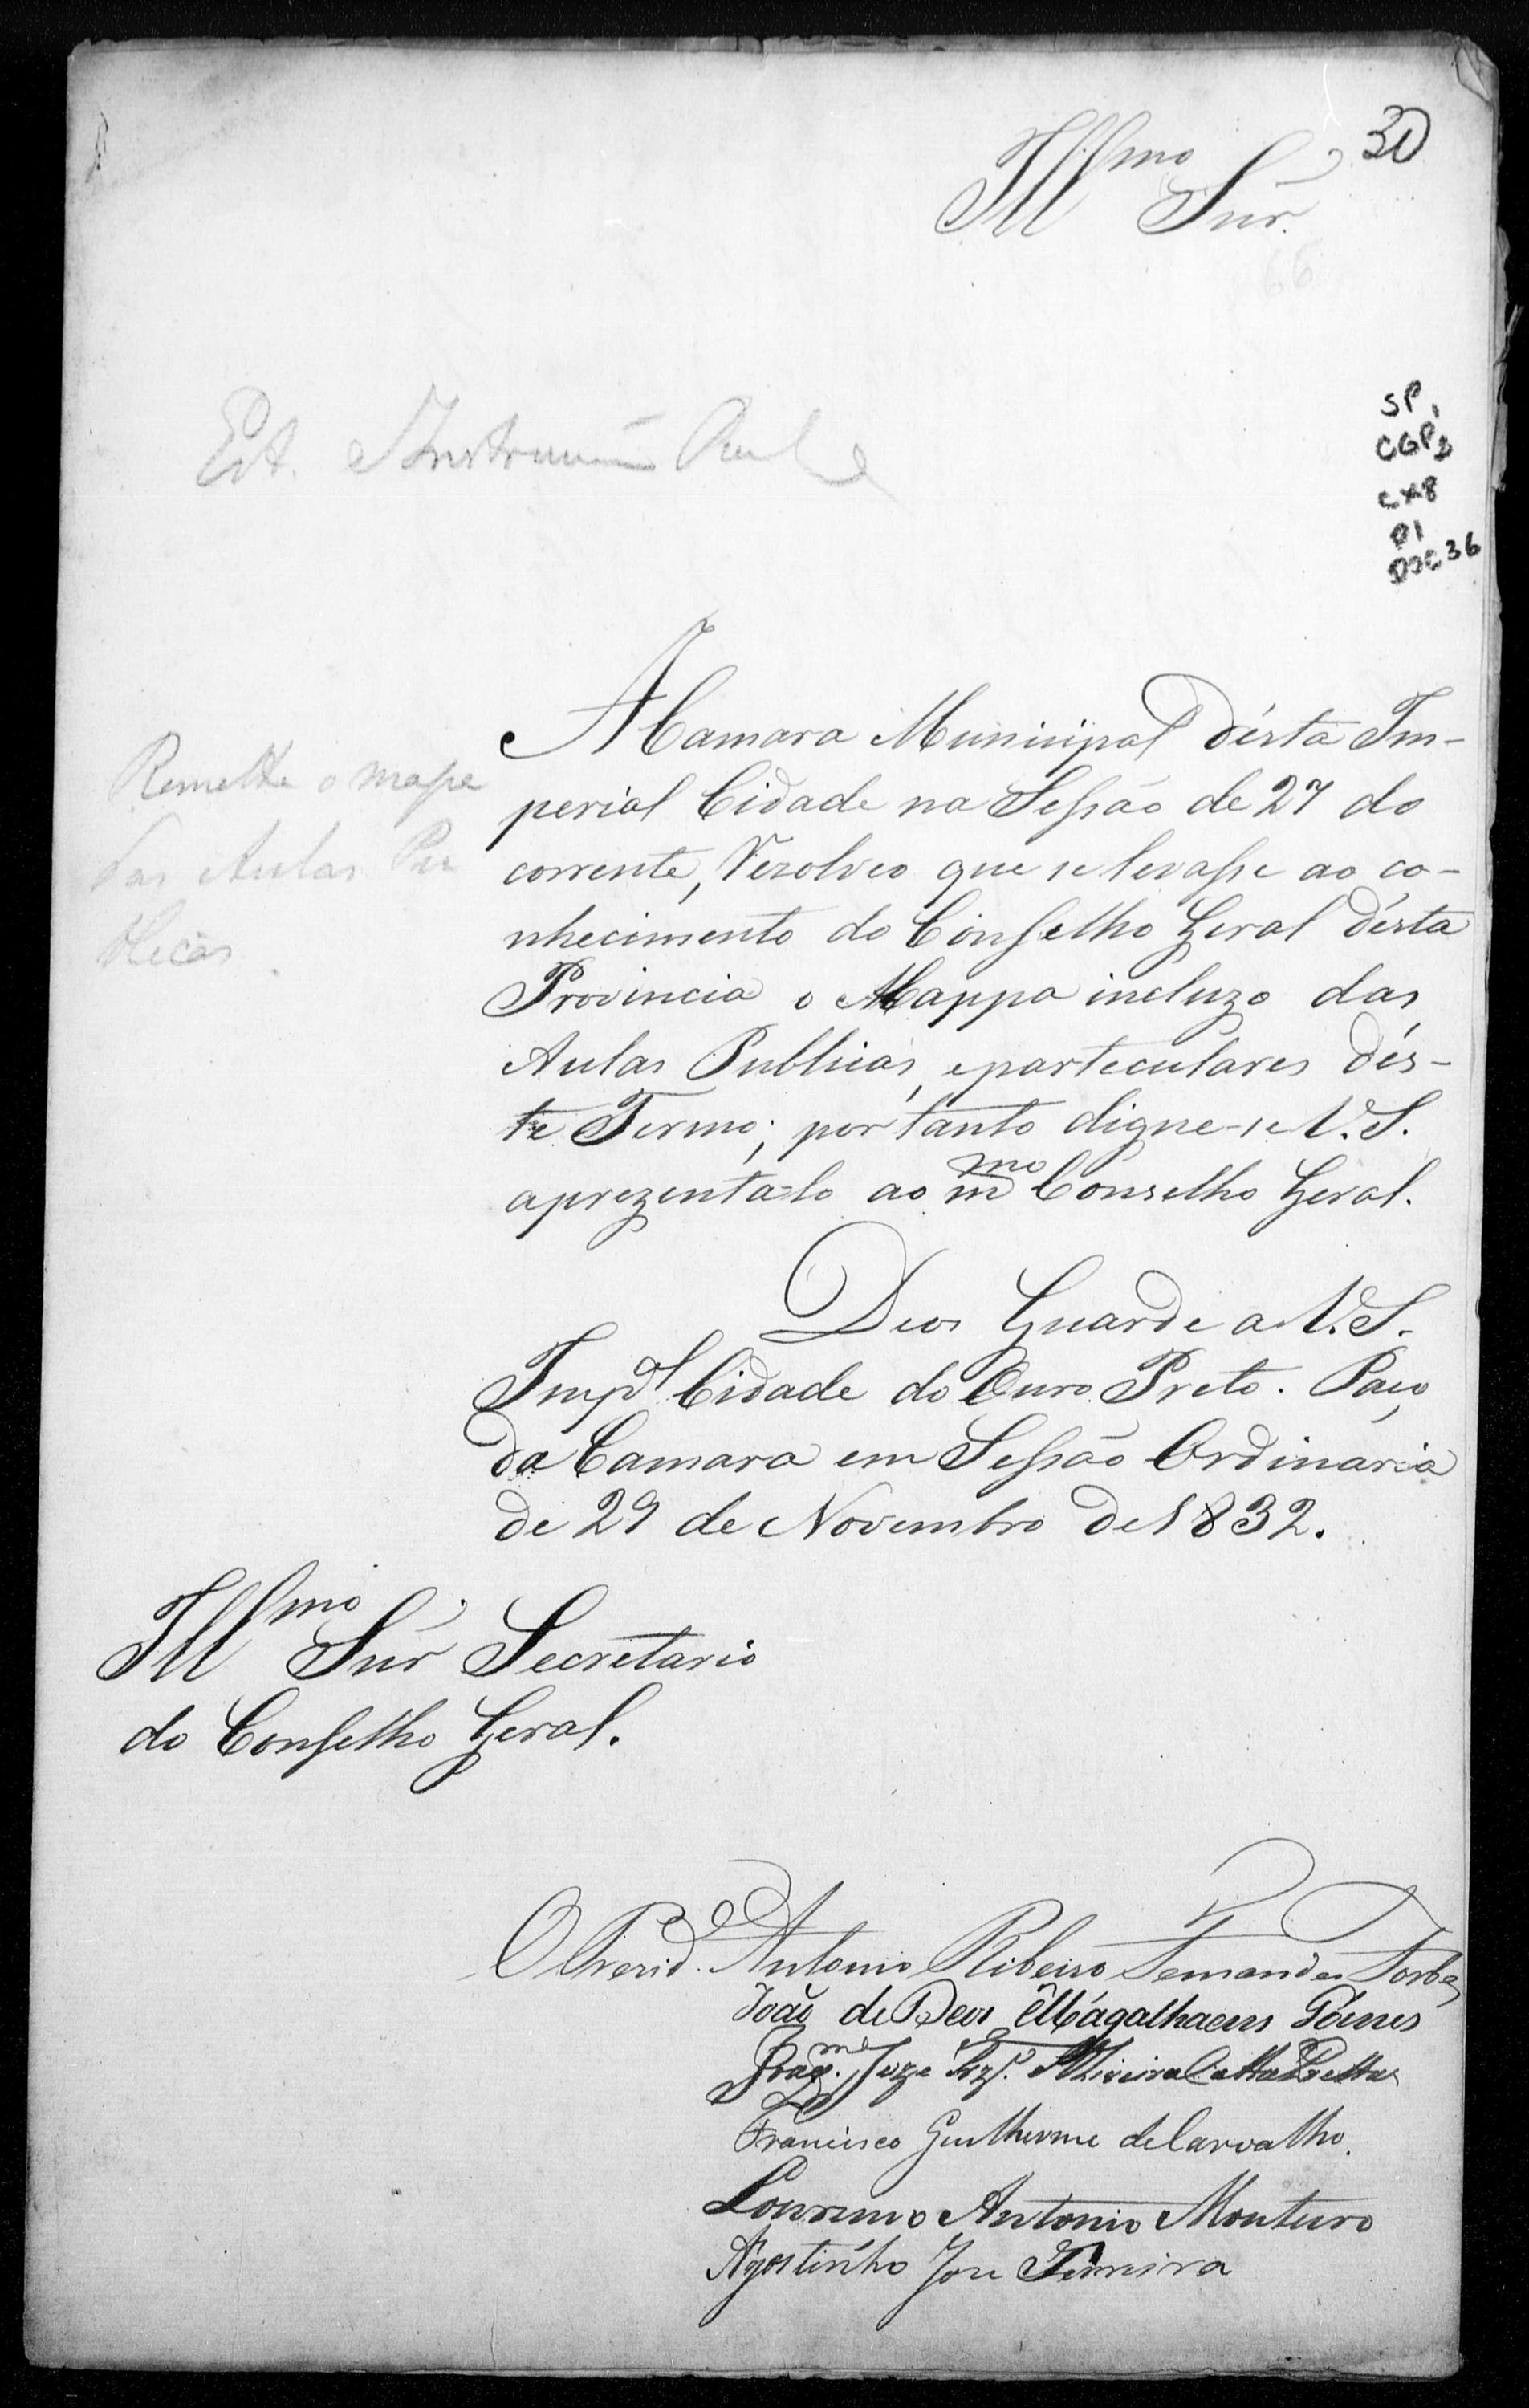 30
Ill.mo Snr.
66
SP,
CGP3
CX8
D1
DOC 36
Remette o mapa
das Aulas Pu
blicas
A Camara Municipal désta Im-
perial Cidade na Sessão de 27 do
corrente, rezolveo que se levasse ao co-
nhecimento do Conselho Geral désta
Provincia o Mappa incluzo das
Aulas Publicas, e particulares dés-
te Termo; por tanto digne-se V. S.
aprezenta-lo ao m.mo Conselho Geral.
Deos Guarde a V. S.
Imp.al Cidade do Ouro Preto. Paço
da Camara em Sessão Ordinaria
de 29 de Novembro de 1832.
Ill.mo Snr Secretario
do Conselho Geral.
O Presid.e Antonio Ribeiro Fernandes Forbes
João de Deos Magalhaens Gomes
Joze
Francisco Guilherme de Carvalho.
Lourenço Antonio Monteiro
Agostinho Jose Ferreira